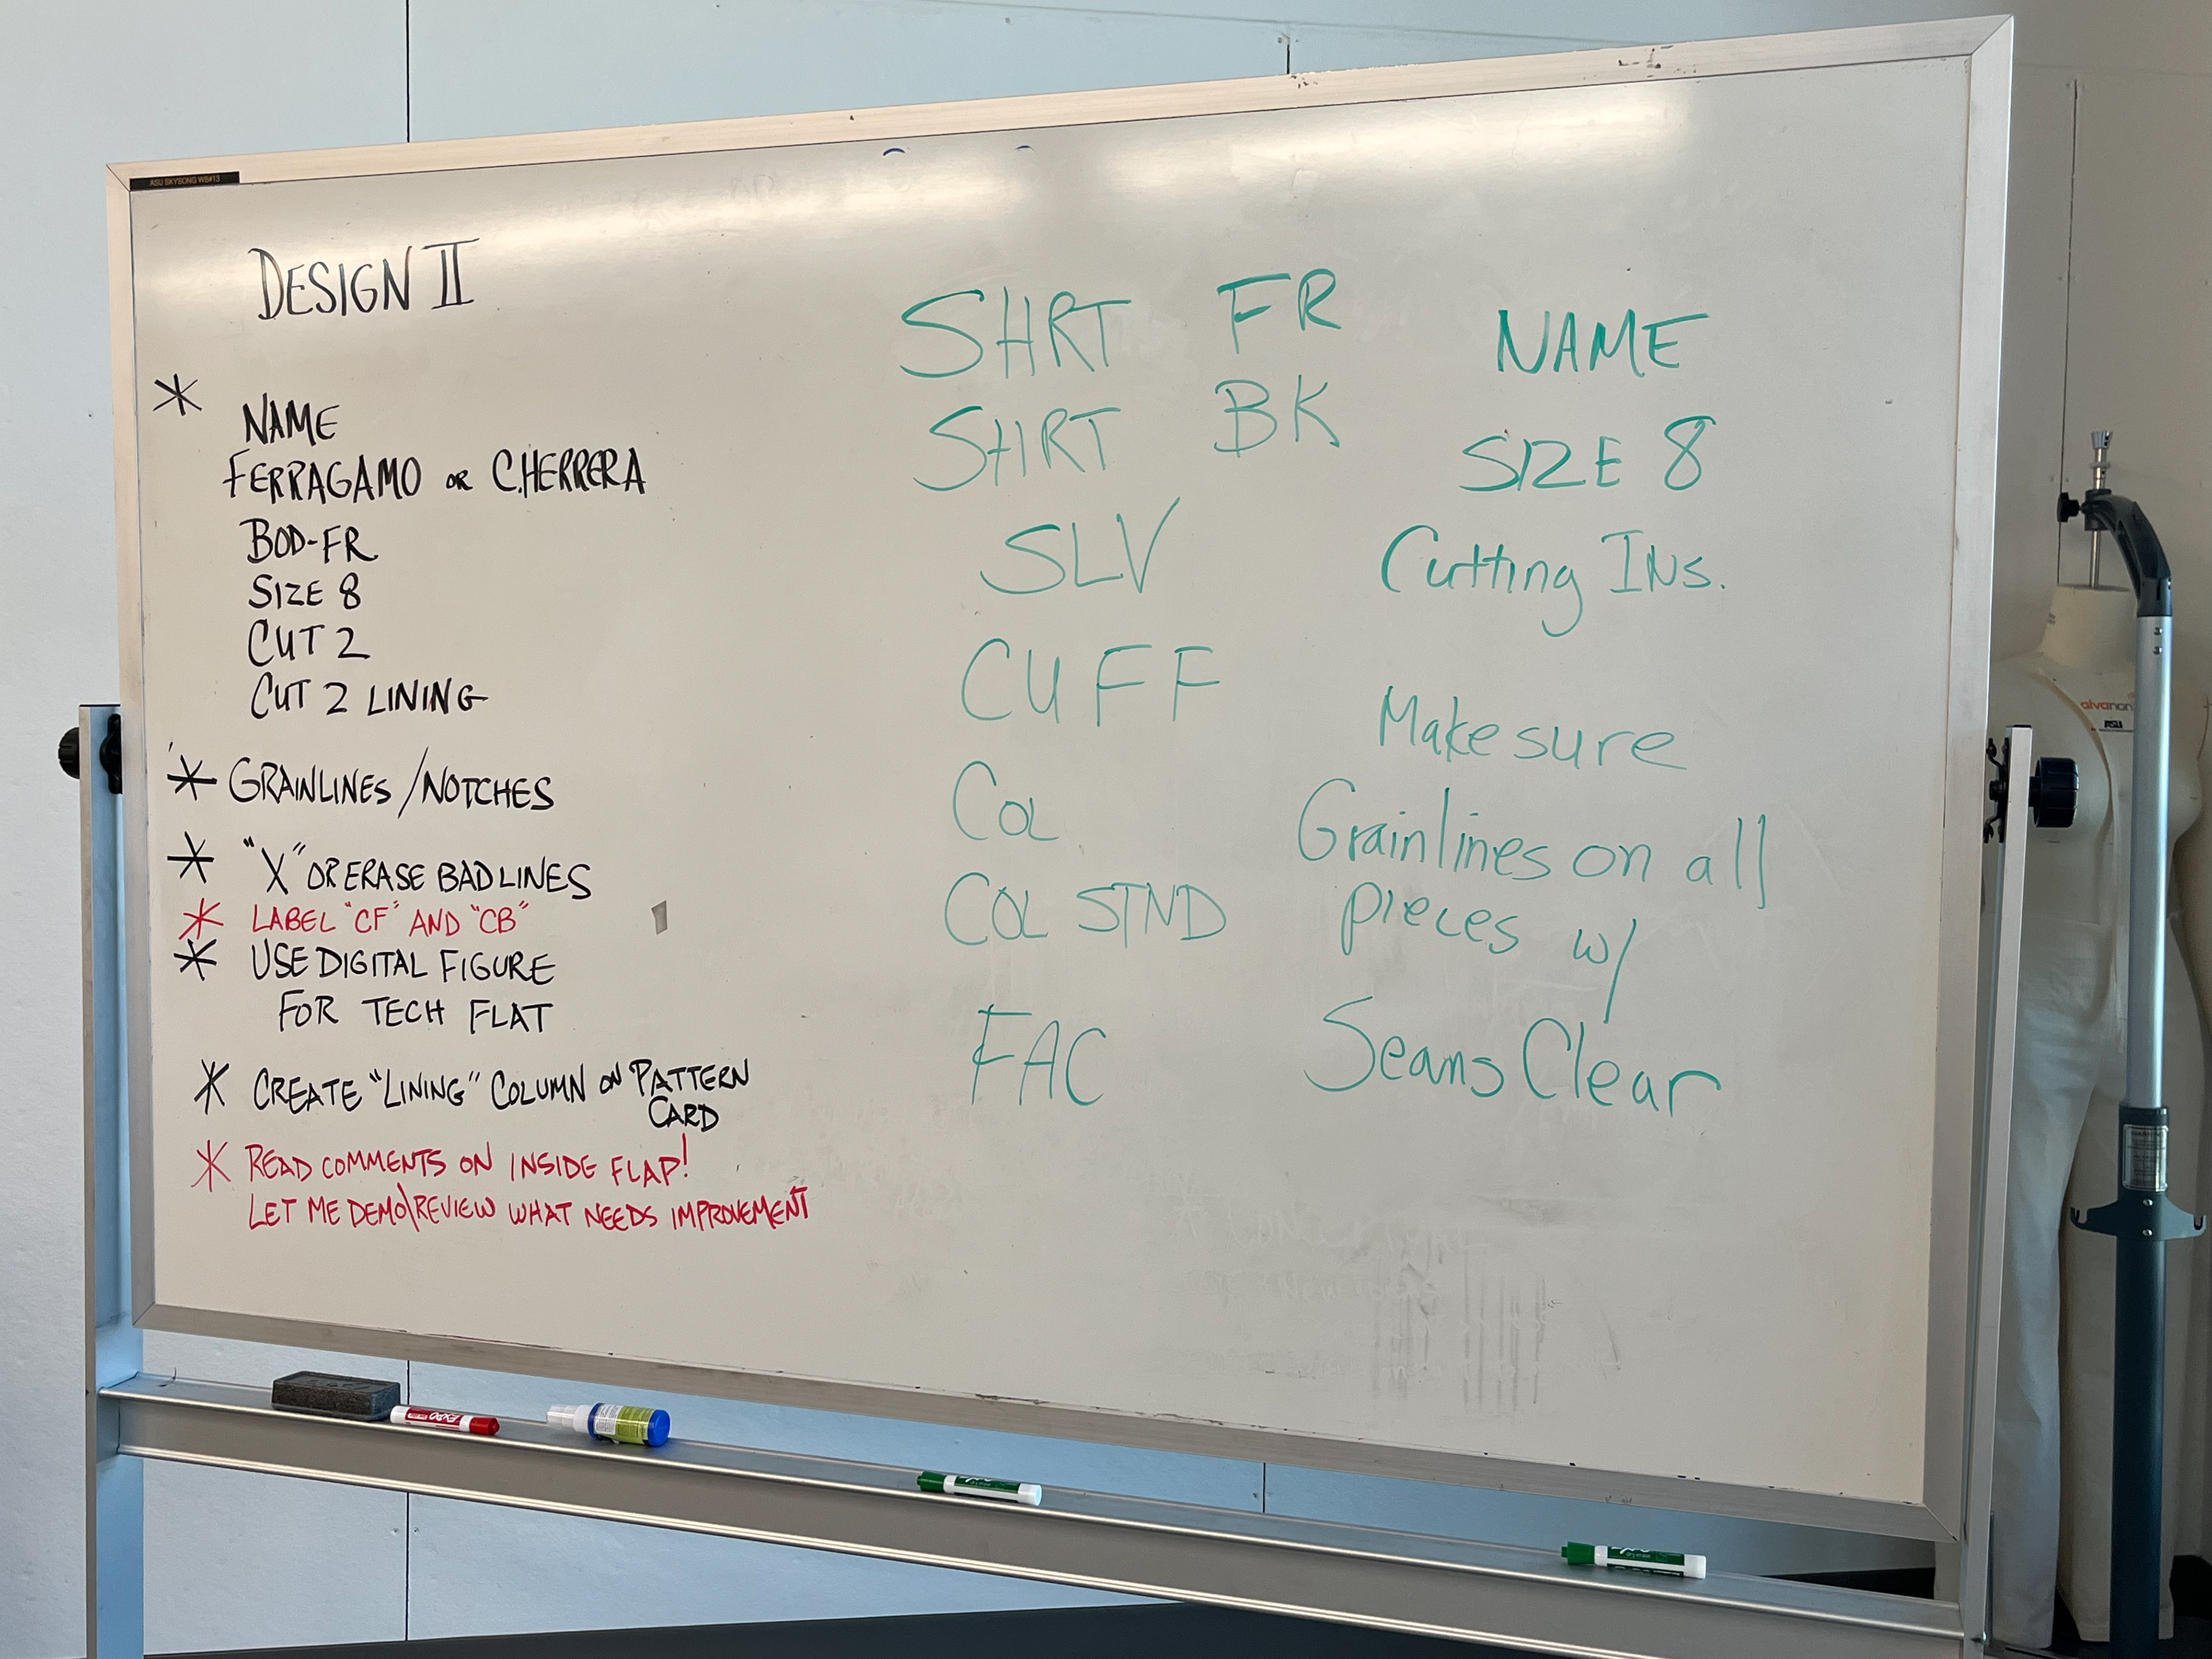 ASU SKYSONG WB#13
DESIGN II
* NAME
FERRAGAMO OR C.HERRERA
BOD-FR
SIZE 8
CUT 2
CUT 2 LINING
* GRAINLINES/NOTCHES
* "X" OR ERASE BAD LINES
* LABEL "CF" AND "CB"
* USE DIGITAL FIGURE
FOR TECH FLAT
* CREATE "LINING" COLUMN ON PATTERN
CARD
* READ COMMENTS ON INSIDE FLAP!
LET ME DEMO\REVIEW WHAT NEEDS IMPROVEMENT
SHRT FR
SHRT BK
SLV
CUFF
COL
COL STND
FAC
NAME
SIZE 8
Cutting INs.
Make sure
Grainlines on all
pieces w/
Seams Clear
alvanon
ASU
EXPO